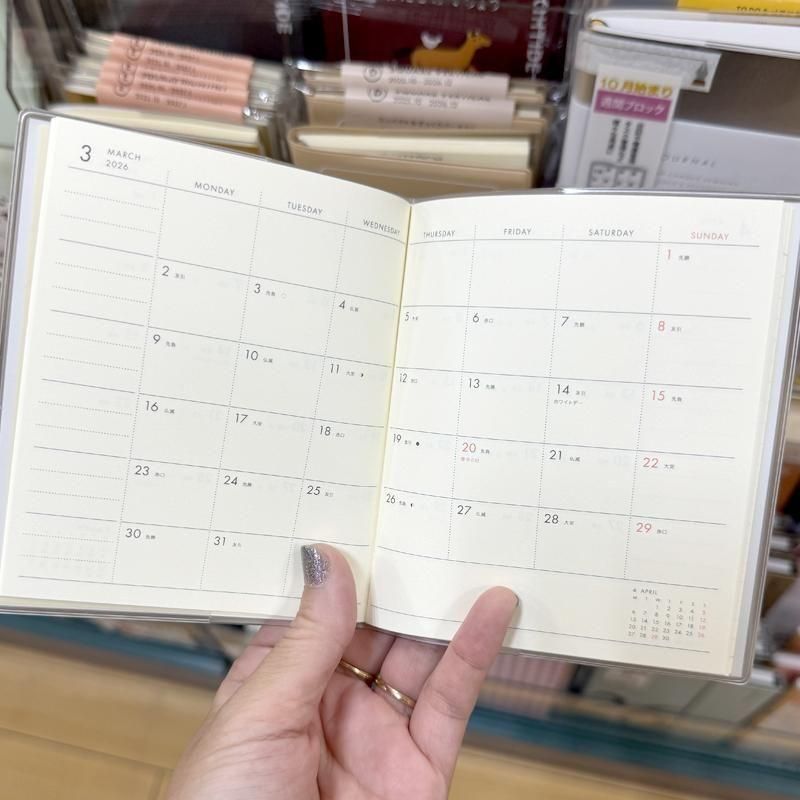 10月始まり
週間ブロック
3 MARCH
2026
MONDAY TUESDAY WEDNESDAY THURSDAY FRIDAY SATURDAY SUNDAY
1 先勝
2 友引 3 先負 4 仏滅 5 大安 6 赤口 7 先勝 8 友引
9 先負 10 仏滅 11 大安 12 赤口 13 先勝 14 友引 15 先負
ホワイトデー
16 仏滅 17 大安 18 赤口 19 友引 20 先負 21 仏滅 22 大安
春分の日
23 赤口 24 先勝 25 友引 26 先負 27 仏滅 28 大安 29 赤口
30 先勝 31 友引
4 APRIL
M T W T F S S
1 2 3 4 5
6 7 8 9 10 11 12
13 14 15 16 17 18 19
20 21 22 23 24 25 26
27 28 29 30